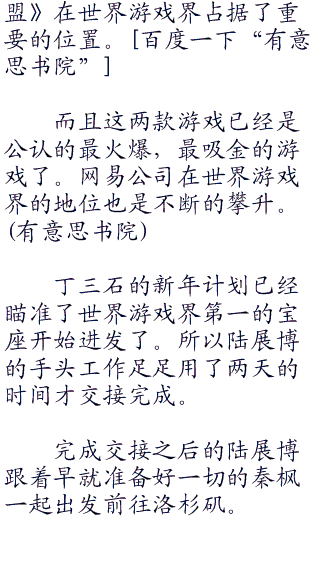 盟》在世界游戏界占据了重
要的位置。[百度一下“有意
思书院”]
而且这两款游戏已经是
公认的最火爆，最吸金的游
戏了。网易公司在世界游戏
界的地位也是不断的攀升。
(有意思书院)
丁三石的新年计划已经
瞄准了世界游戏界第一的宝
座开始进发了。所以陆展博
的手头工作足足用了两天的
时间才交接完成。
完成交接之后的陆展博
跟着早就准备好一切的秦枫
一起出发前往洛杉矶。